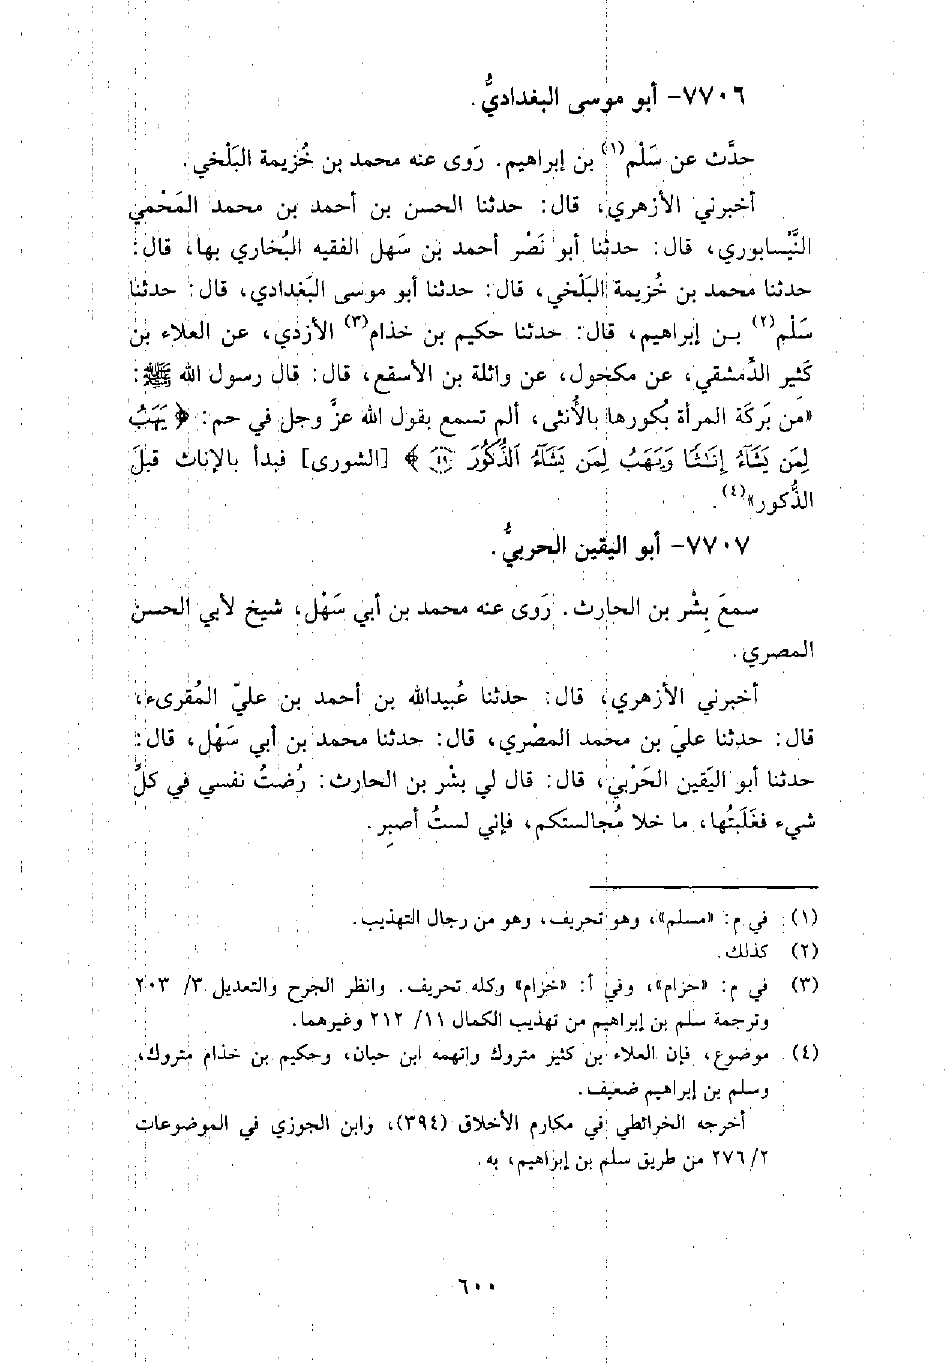 ٧٧٠٦- أبو موسى البغداديُّ.
حدَّث عن سَلْم(١) بن إبراهيم. رَوى عنه محمد بن خُزيمة البَلْخي.
أخبرني الأزهري، قال: حدثنا الحسن بن أحمد بن محمد المَحْمي
النَّيْسابوري، قال: حدثنا أبو نَصْر أحمد بن سَهل الفقيه البُخاري بها، قال:
حدثنا محمد بن خُزيمة البَلْخي، قال: حدثنا أبو موسى البَغدادي، قال: حدثنا
سَلْم(٢) بن إبراهيم، قال: حدثنا حكيم بن خذام(٣) الأزدي، عن العلاء بن
كَثير الدِّمشقي، عن مكحول، عن واثلة بن الأسقع، قال: قال رسول الله ﷺ:
«من بَركَة المرأة بُكورها بالأُنثى، ألم تسمع بقول الله عزَّ وجل في حم: ﴿ يَهَبُ
لِمَن يَشَآءُ إِنَـٰثًا وَيَهَبُ لِمَن يَشَآءُ ٱلذُّكُورَ ﴿٤٩﴾ ﴾ [الشورى] فبدأ بالإناث قبلَ
الذُّكور»(٤).
٧٧٠٧- أبو اليقين الحربيُّ.
سمعَ بِشْر بن الحارث. رَوى عنه محمد بن أبي سَهْل، شيخ لأبي الحسن
المصري.
أخبرني الأزهري، قال: حدثنا عُبيدالله بن أحمد بن عليّ المُقرىء،
قال: حدثنا عليّ بن محمد المصْري، قال: حدثنا محمد بن أبي سَهْل، قال:
حدثنا أبو اليَقين الحَرْبي، قال: قال لي بشْر بن الحارث: رُضتُ نفسي في كلِّ
شيء فغَلَبتُها، ما خلا مُجالستكم، فإني لستُ أصبِر.
(١) في م: «مسلم»، وهو تحريف، وهو من رجال التهذيب.
(٢) كذلك.
(٣) في م: «حزام»، وفي أ: «خزام» وكله تحريف. وانظر الجرح والتعديل ٣/ ٢٠٣
وترجمة سلم بن إبراهيم من تهذيب الكمال ١١/ ٢١٢ وغيرهما.
(٤) موضوع، فإن العلاء بن كثير متروك واتهمه ابن حبان، وحكيم بن خذام متروك،
وسلم بن إبراهيم ضعيف.
أخرجه الخرائطي في مكارم الأخلاق (٣٩٤)، وابن الجوزي في الموضوعات
٢/ ٢٧٦ من طريق سلم بن إبراهيم، به.
٦٠٠